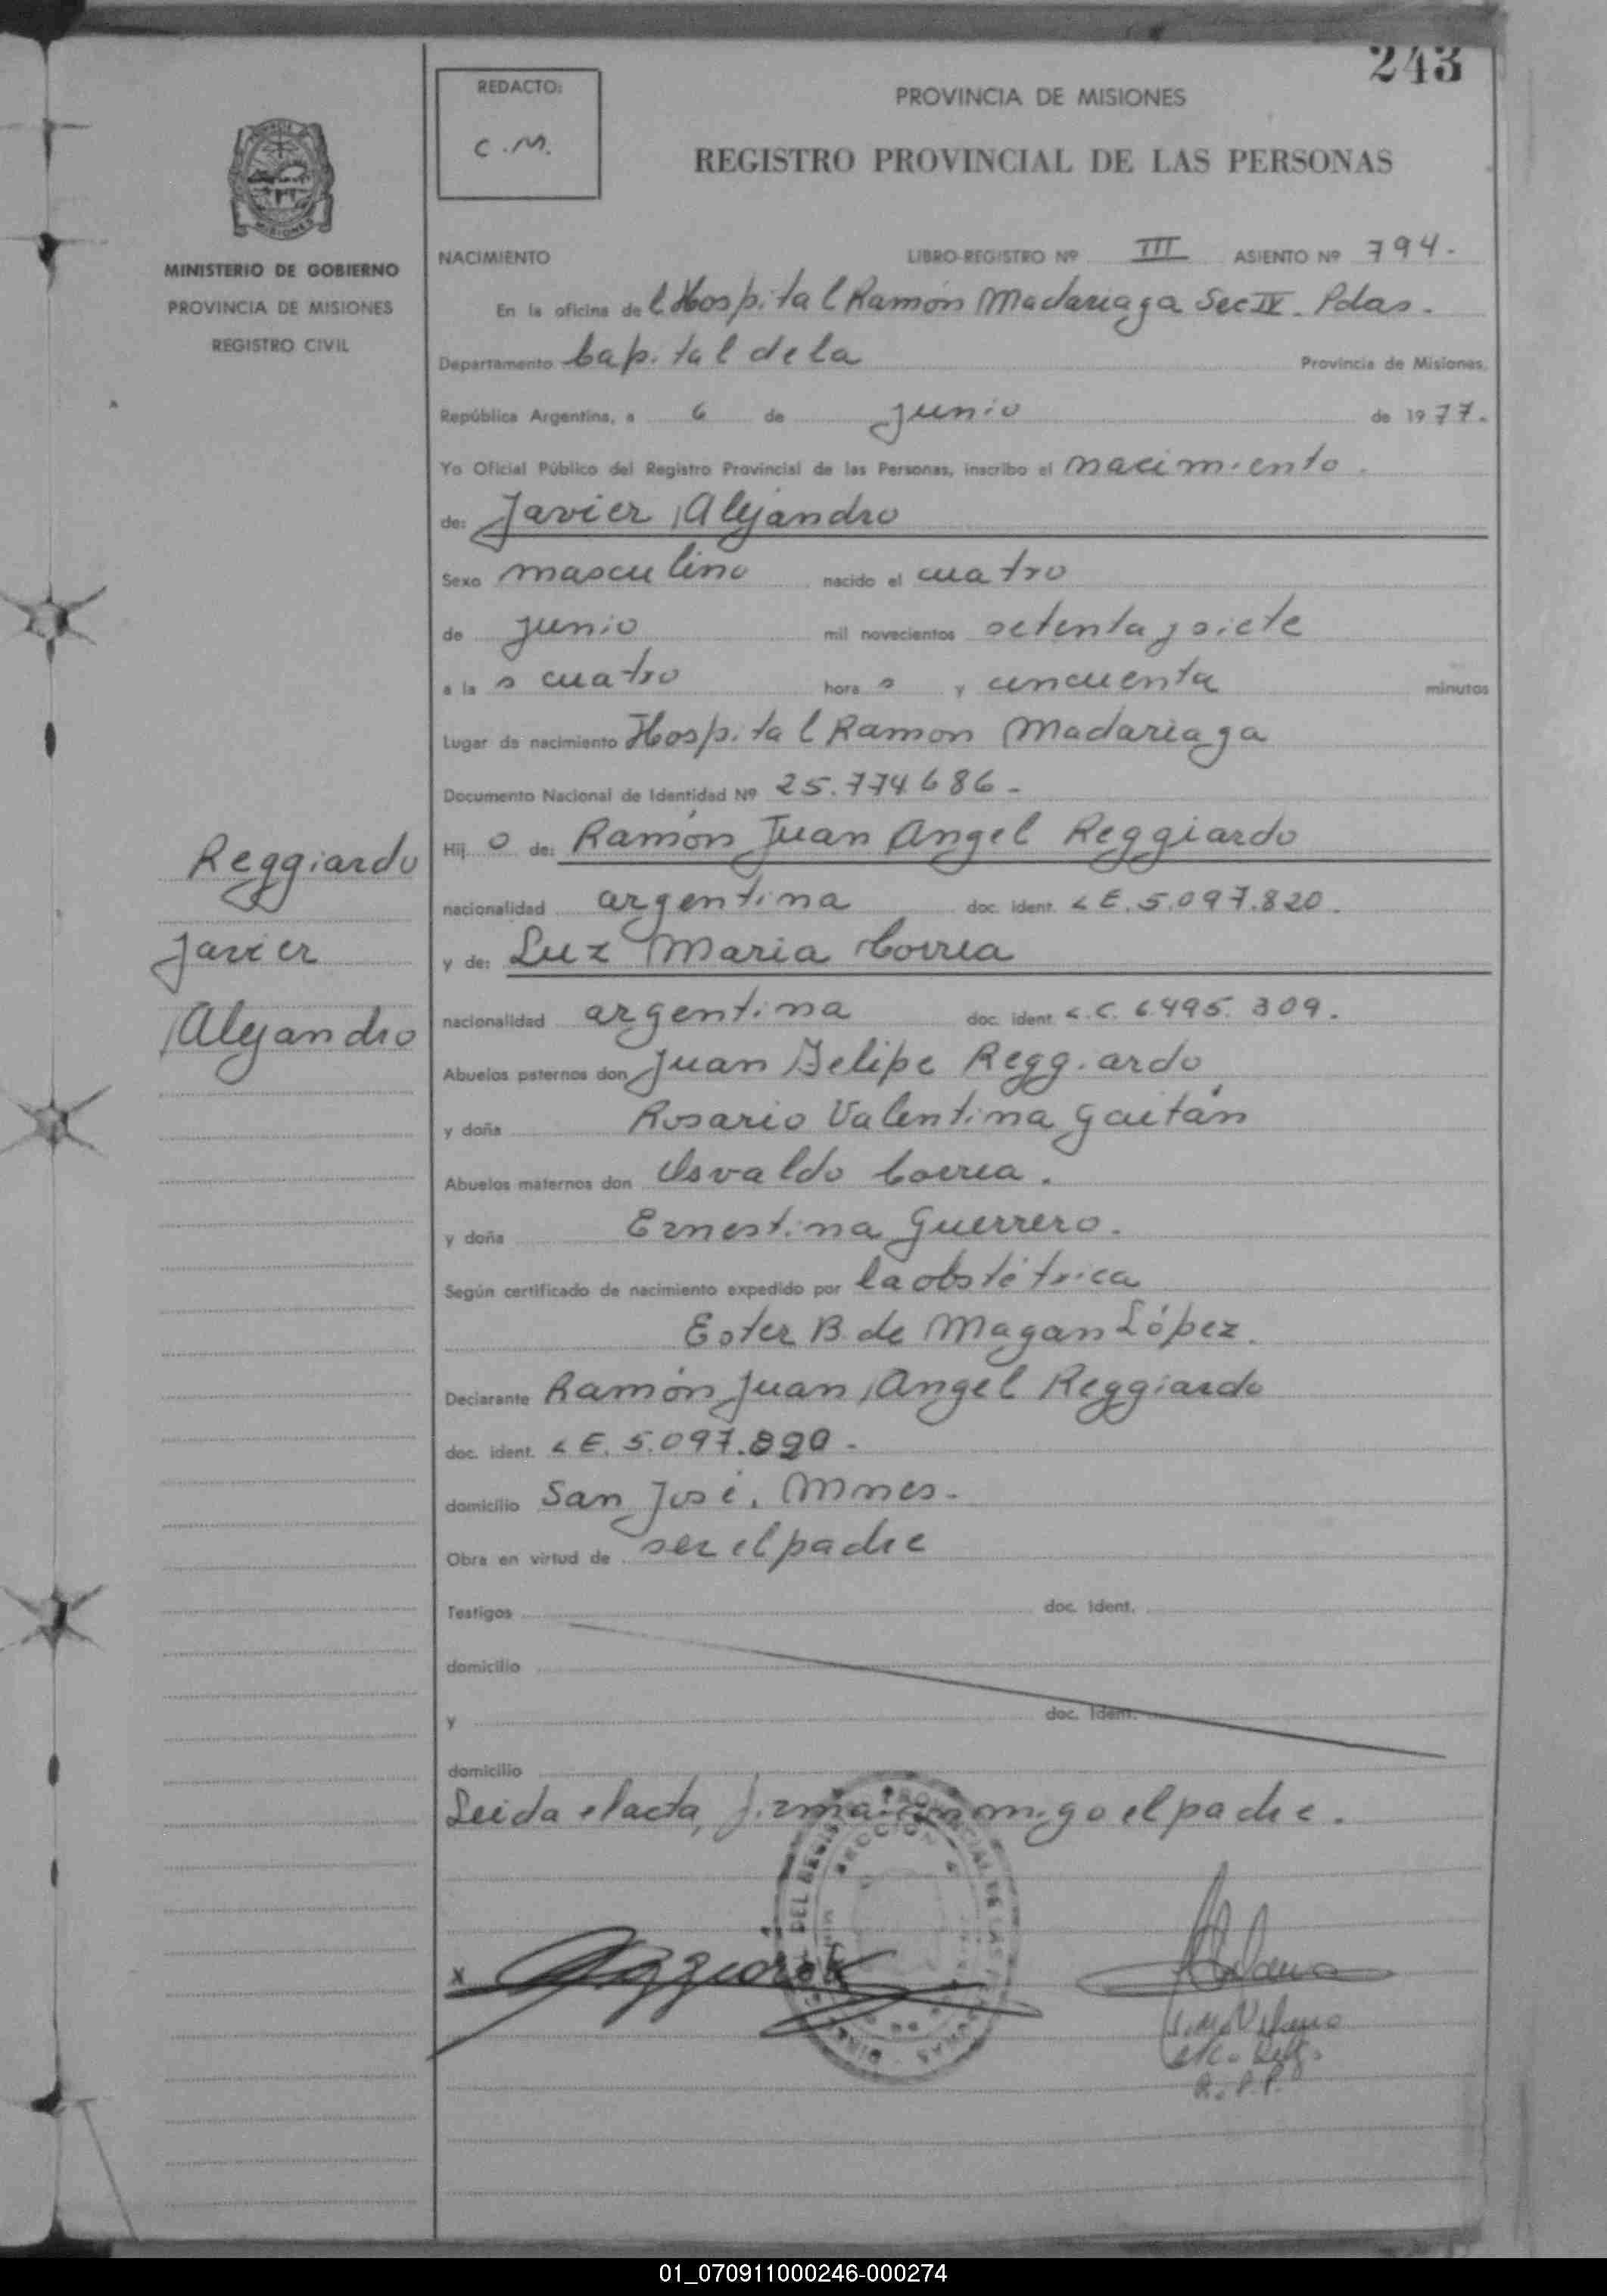 243
REDACTO:
C.M.
PROVINCIA DE MISIONES
REGISTRO PROVINCIAL DE LAS PERSONAS
MINISTERIO DE GOBIERNO
PROVINCIA DE MISIONES
REGISTRO CIVIL
NACIMIENTO LIBRO-REGISTRO Nº III ASIENTO Nº 794.-
En la oficina del Hospital Ramón Madariaga Sec IV. Pdas.
Departamento Capital de la Provincia de Misiones,
República Argentina, a 6 de junio de 1977.
Yo Oficial Público del Registro Provincial de las Personas, inscribo el nacimiento.
de: Javier Alejandro
Sexo masculino nacido el cuatro
de junio mil novecientos setenta y siete
a las cuatro horas y cincuenta minutos
Lugar de nacimiento Hospital Ramon Madariaga
Documento Nacional de Identidad Nº 25.774.686.-
Hijo de: Ramón Juan Angel Reggiardo
nacionalidad argentina doc. ident. L E. 5.097.820.
y de: Luz Maria Correa
nacionalidad argentina doc. ident. L.C. 6.495.309.
Abuelos paternos don Juan Felipe Reggiardo
y doña Rosario Valentina Gaitán
Abuelos maternos don Osvaldo Correa.
y doña Ernestina Guerrero.
Según certificado de nacimiento expedido por la obstétrica
Ester B. de Magan López.
Declarante Ramón Juan Angel Reggiardo
doc. ident. L E. 5.097.820.-
domicilio San José, Mnes.-
Obra en virtud de ser el padre
Testigos doc. ident.
domicilio
y doc. ident.
domicilio
Leida el acta, firma conmigo el padre.
Reggiardo
Javier
Alejandro
DEL REGISTRO PROVINCIAL DE LAS PERSONAS
SECCION
x Reggiardo
R.P.P.
01_070911000246-000274